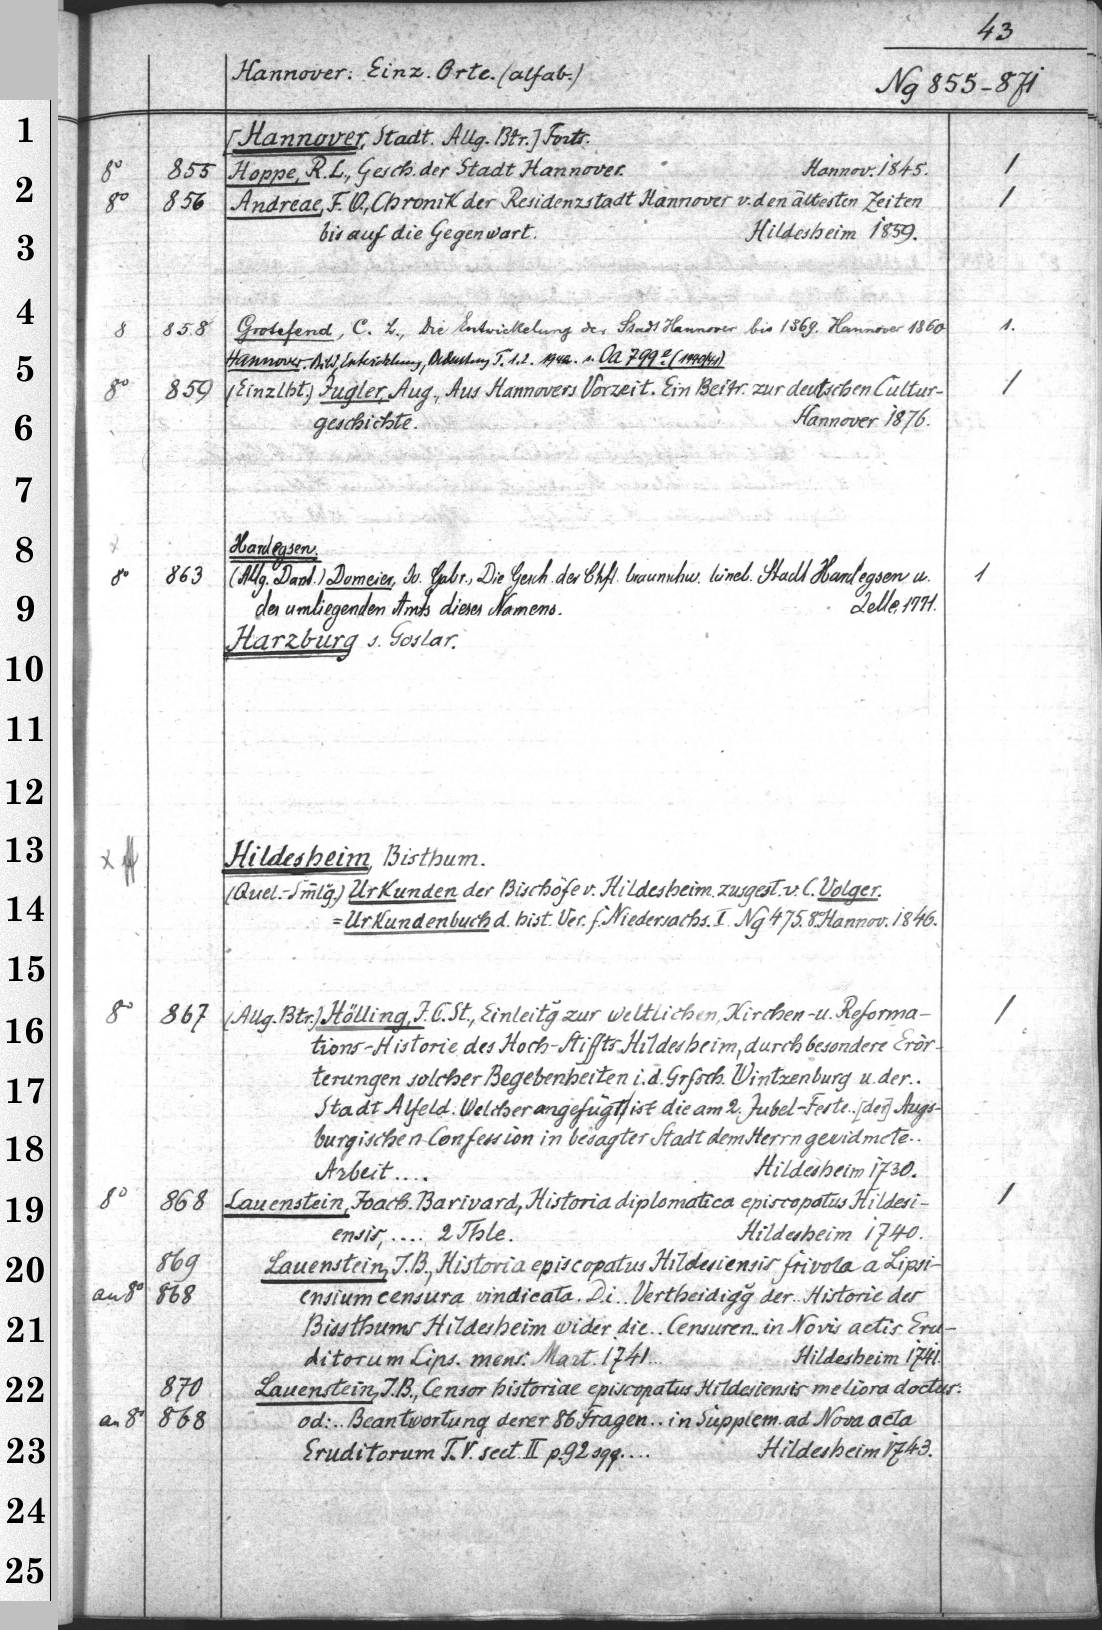 43
Hannover: Einz. Orte. (alfab.)
Ng 855-871
1
[Hannover, Stadt. Allg. Btr.] Forts.
8° 855 Hoppe, R.L., Gesch. der Stadt Hannover. Hannov. 1845. 1
2
8° 856 Andreae, F. O., Chronik der Residenzstadt Hannover v. den ältesten Zeiten 1
bis auf die Gegenwart. Hildesheim 1859.
3
4
8 858 Grotefend, C. L., Die Entwickelung der Stadt Hannover bis 1369. Hannover 1860 1.
5
Hannover. Bild, Entwicklung, Bedeutung T. 1.2. s. Oa 799 e (1940/41)
8° 859 (Einzlht.) Jugler, Aug., Aus Hannovers Vorzeit. Ein Beitr. zur deutschen Cultur- 1
6
geschichte. Hannover 1876.
7
8
x
Hardegsen.
8° 863 (Allg. Darst.) Domeier, Jo. Gabr., Die Gesch. der Chfl. braunschw. lüneb. Stadt Hardegsen u. 1
9
des umliegenden Amts dieses Namens. Zelle, 1771.
10
Harzburg s. Goslar.
11
12
13
x
Hildesheim, Bisthum.
(Quel.-Smlg.) Urkunden der Bischöfe v. Hildesheim. zusgest. v. C. Volger.
14
= Urkundenbuch d. hist. Ver. f. Niedersachs. I Ng 475. 8° Hannov. 1846.
15
8° 867 (Allg. Btr.) Hölling, J. C. St., Einleitg zur weltlichen, Kirchen- u. Reforma- 1
16
tions-Historie des Hoch-Stiffts Hildesheim, durch besondere Erör-
17
terungen solcher Begebenheiten i. d. Grfsch. Wintzenburg u. der..
Stadt Alfeld. Welcher angefügt ist die am 2. Jubel-Feste.. [der] Augs-
18
burgischen Confession in besagter Stadt dem Herrn gewidmete..
Arbeit.... Hildesheim 1730.
19
8° 868 Lauenstein, Joach. Barward, Historia diplomatica episcopatus Hildesi- 1
ensis, .... 2 Thle. Hildesheim 1740.
20
869 Lauenstein, J.B., Historia episcopatus Hildesiensis frivola a Lipsi-
an 8° 868 ensium censura vindicata. D.i.. Vertheidigg der.. Historie des
21
Bissthums Hildesheim wider die.. Censuren.. in Novis actis Eru-
ditorum Lips. mens. Mart. 1741... Hildesheim 1741.
22
870 Lauenstein, J.B., Censor historiae episcopatus Hildesiensis meliora doctus.
an 8° 868 od:.. Beantwortung derer 86 Fragen.. in Supplem. ad Nova acta
23
Eruditorum T. V. sect. II p. 92 sqq.... Hildesheim 1743.
24
25